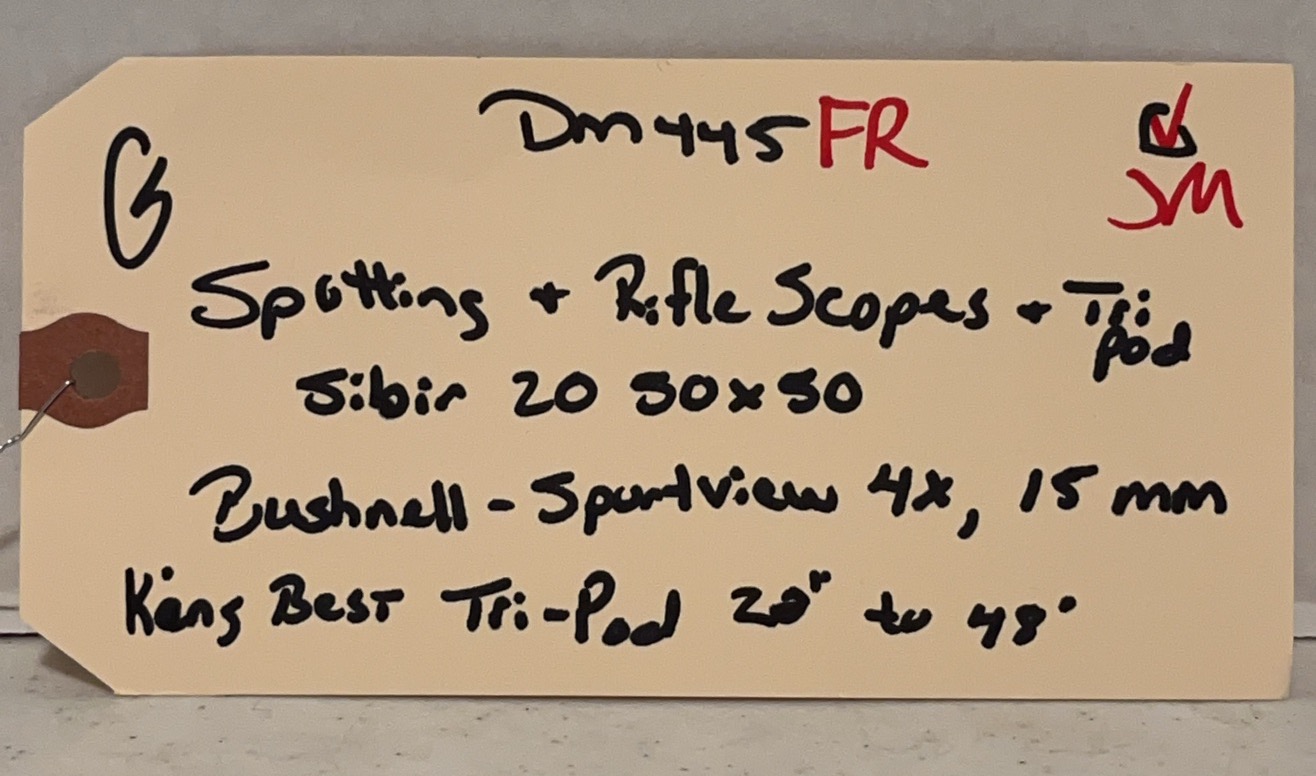 Dm445FR
JM
Spotting + Rifle Scopes + Tri
pod
Sibir 20 50x50
Bushnell - Sportview 4x, 15 mm
King Best Tri-Pod to 48"